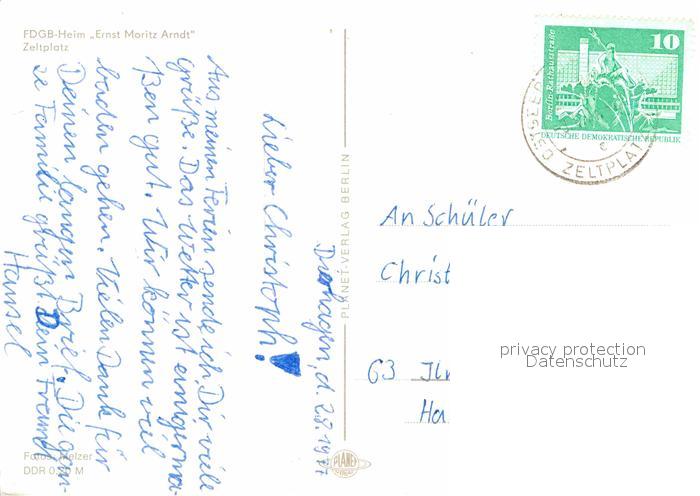 FDGB-Heim „Ernst Moritz Arndt"
Zeltplatz
Dierhagen, d. 2.8.19
Lieber Christoph!
Aus meinen Ferien sende ich Dir viele
Grüße. Das Wetter ist einigerma-
ßen gut. Wir können viel
baden gehen. Vielen Dank für
Deinen langen Brief. Die gan-
ze Familie grüßt Dein Freund
Hansel
Fotos: Melzer
DDR 0,20 M
PLANET-VERLAG BERLIN
PLANET
10
Berlin-Rathausstraße
DEUTSCHE DEMOKRATISCHE REPUBLIK
ZELTPLATZ
An Schüler
Christ
63 Ilm
Ha
privacy protection
Datenschutz